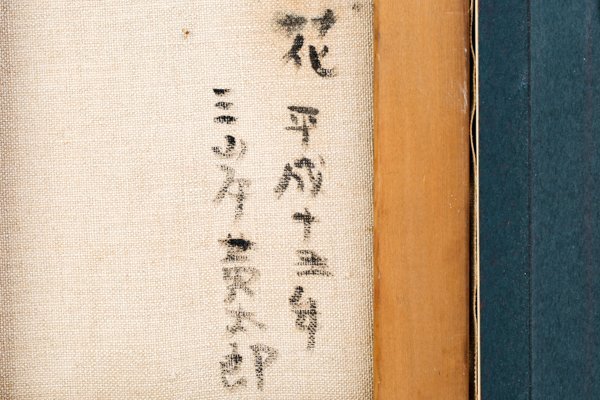 花 平成十五年
三岸 黄太郎